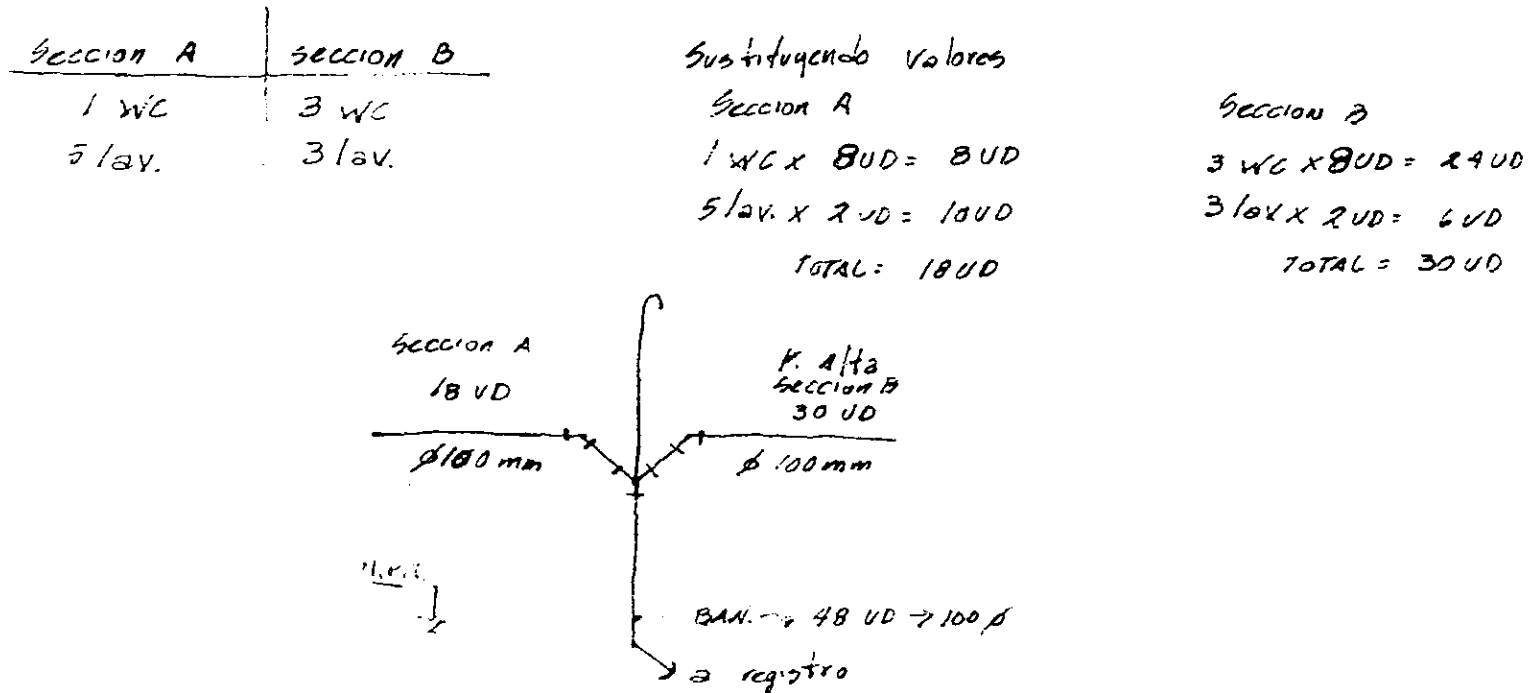 Seccion A | Seccion B
1 WC 3 WC
5 lav. 3 lav.
Sustituyendo Valores
Seccion A
1 WC x 8UD = 8UD
5 lav. x 2UD = 10UD
TOTAL = 18UD
Seccion B
3 WC x 8UD = 24UD
3 lav x 2UD = 6UD
TOTAL = 30UD
Seccion A
18 UD
ø100 mm
P. Alta
Seccion B
30 UD
ø 100mm
BAN. → 48 UD → 100 ø
a registro